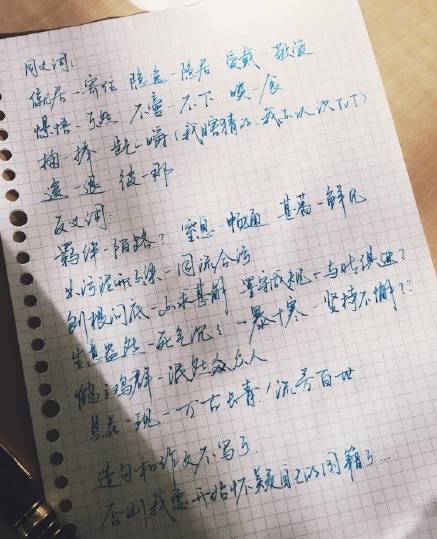 同义词:
僦居-寄住 隐逸-隐居 爱戴-敬爱
爆 不啻-不下 啖-食
掬-捧 龁-嚼(我瞎猜的,我不认识TuT)
遁-退 彼-那
反义词:
羁绊-陌路? 窒息-畅通 甚蕃-鲜见
出污泥而不染-同流合污
刨根问底-不求甚解 墨守成规-与时俱进?
生意盎然-死气沉沉 一暴十寒-坚持不懈??
鹤立鸡群-混处众人
昙花一现-万古长青/流芳百世
造句和作文不写了
否则我要开始怀疑自己的国籍了...